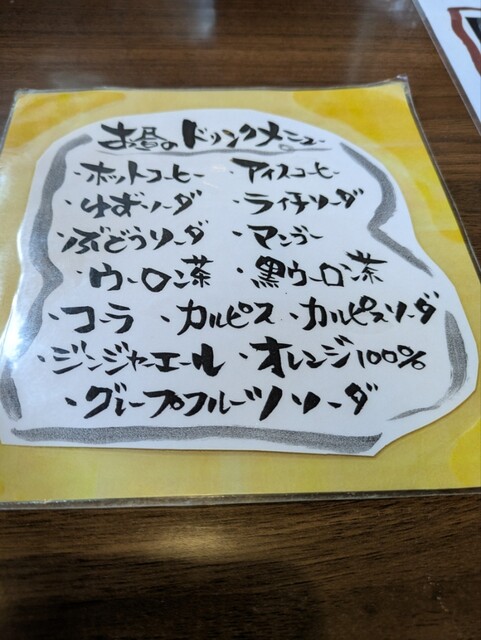 お昼のドリンクメニュー
・ホットコーヒー ・アイスコーヒー
・ゆずソーダ ・ライチソーダ
・ぶどうソーダ ・マンゴー
・ウーロン茶 ・黒ウーロン茶
・コーラ ・カルピス ・カルピスソーダ
・ジンジャーエール ・オレンジ100%
・グレープフルーツソーダ